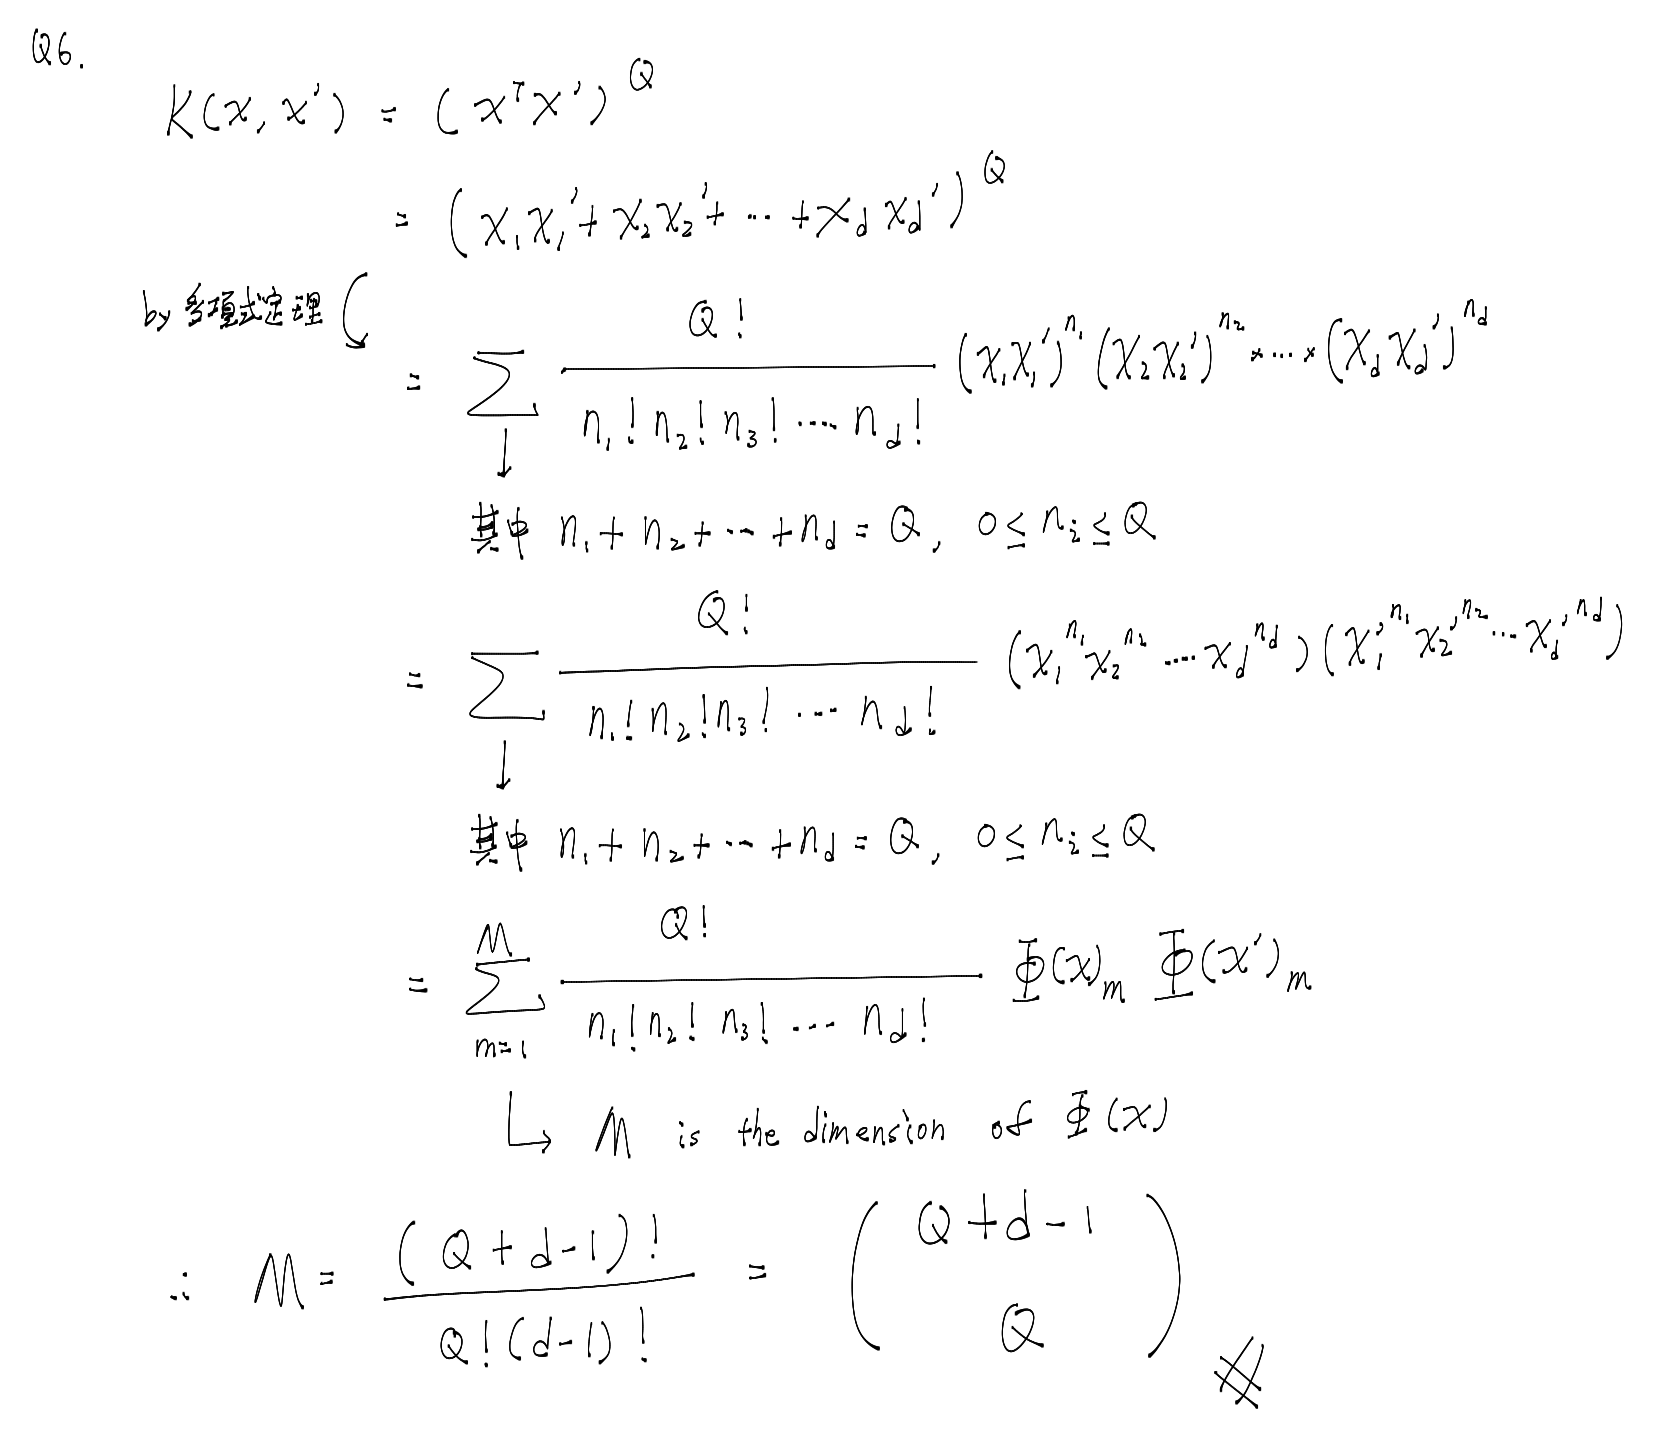 Q6.
K(x, x') = (xᵀx')^Q
= (x₁x₁' + x₂x₂' + ⋯ + x_d x_d')^Q
by 多項式定理
= Σ Q! / (n₁! n₂! n₃! ⋯ n_d!) (x₁x₁')^n₁ (x₂x₂')^n₂ × ⋯ × (x_d x_d')^n_d
↓
其中 n₁ + n₂ + ⋯ + n_d = Q, 0 ≤ n_i ≤ Q
= Σ Q! / (n₁! n₂! n₃! ⋯ n_d!) (x₁^n₁ x₂^n₂ ⋯ x_d^n_d) (x₁'^n₁ x₂'^n₂ ⋯ x_d'^n_d)
↓
其中 n₁ + n₂ + ⋯ + n_d = Q, 0 ≤ n_i ≤ Q
= Σ_{m=1}^{M} Q! / (n₁! n₂! n₃! ⋯ n_d!) Φ(x)_m Φ(x')_m
↳ M is the dimension of Φ(x)
∴ M = (Q + d - 1)! / (Q! (d - 1)!) = (Q + d - 1 Q) #